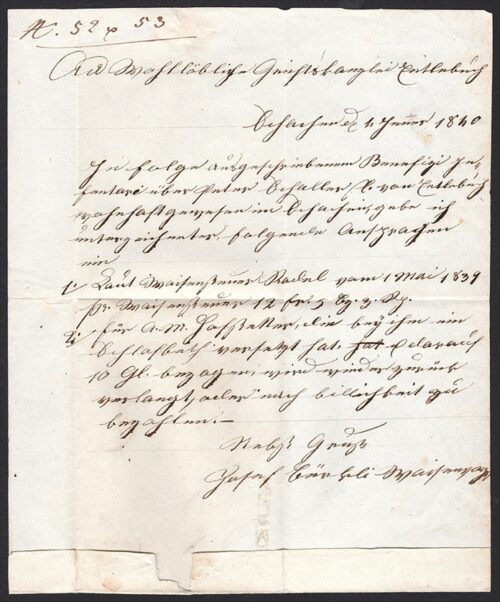 N. 52 & 53
An Wohllöbliche Gerichtskanzlei Entlebuch
Schachen d. 4 Jener 1840
In folge ausgeschriebenem Benefizi In-
fentari über Peter Schaller von Entlebuch
wohnhaft gewesen in Schachen, gebe ich
unterzeichneter, folgende Ansprachen
ein
1. Laut Waisensteuer Rodel vom 1 Mai 1839
pr. Waisensteuer 12 fr. 5 bz. 3 rp.
2. für A. M. Hofstetter, die bey ihm ein
Schlafbeth versetzt hat hat & darauf
10 Gl. bezogen, wird wieder zurück
verlangt, oder nach billichkeit zu
bezahlen.–
Nebst Gruß
Josef Bürkli Waisenvogt